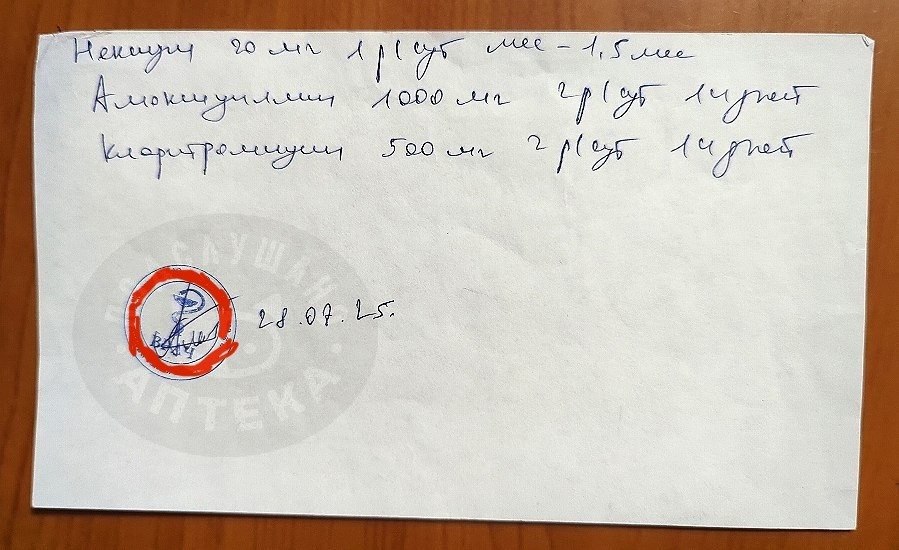 Нексиум 20 мг 1 р/сут мес - 1,5 мес
Амоксициллин 1000 мг 2 р/сут 14 дней
Кларитромицин 500 мг 2 р/сут 14 дней
ПОДСЛУШАНО
АПТЕКА
ВРАЧ
28.07.25.